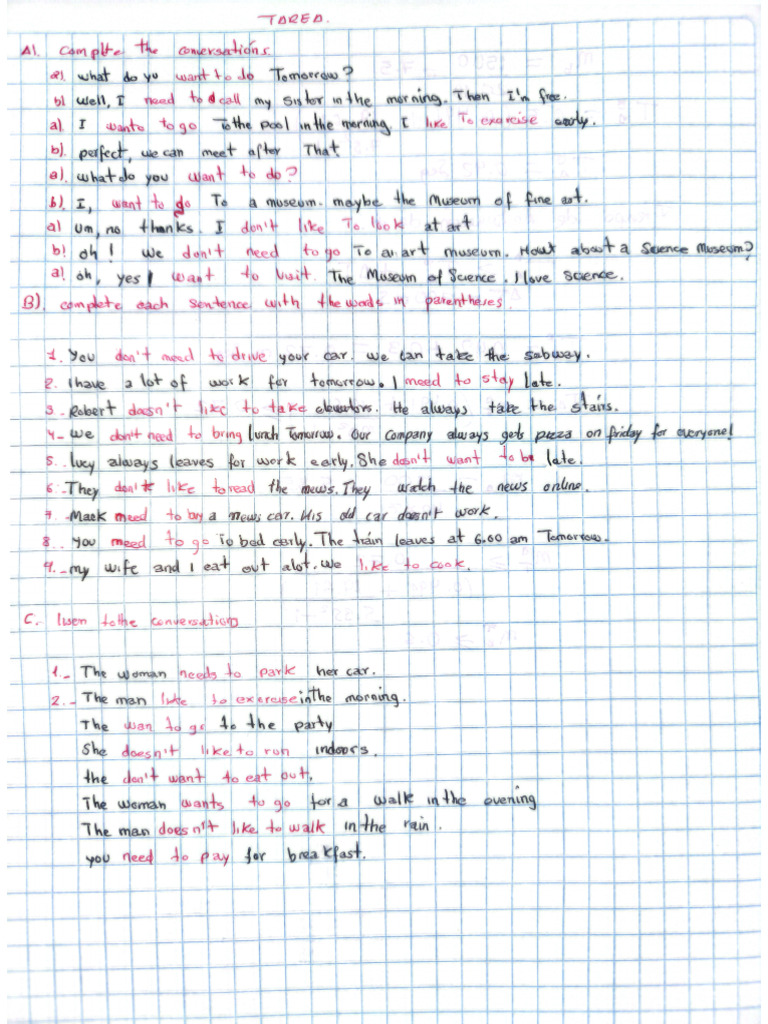 TAREA.
A). Complete the conversations.
a). what do yo want to do Tomorrow?
b) Well, I need to call my sister in the morning. Then I'm free.
a) I wants to go To the pool in the morning. I like To exercise early.
b). perfect, we can meet after That
a). what do you want to do?
b). I, want to go To a museum. maybe the Museum of fine art.
a) Um, no thanks. I don't like To look at art
b) oh! we don't need to go To an art museum. How about a Science Museum?
a) oh, yes I want to visit. The Museum of Science. I love science.
B). complete each sentence with the words in parentheses.
1. You don't need to drive your car. we can take the subway.
2. I have a lot of work for tomorrow. I need to stay late.
3.- Robert doesn't like to take elevators. He always take the stairs.
4.- We don't need to bring lunch Tomorrow. Our company always gets pizza on friday for everyone!
5.. lucy always leaves for work early. She dosn't want to be late.
6.- They don't like to read the news. They watch the news online.
7.- Mark need to buy a new car. His old car doesn't work.
8.. You need to go to bed early. The train leaves at 6.00 am Tomorrow.
9.- my wife and I eat out alot. we like to cook.
C. lisen to the conversations
1.- The woman needs to park her car.
2.- The man like to exercise in the morning.
The wan to go to the party
She doesn't like to run indoors.
the don't want to eat out.
The woman wants to go for a walk in the evening
The man doesn't like to walk in the rain.
you need to pay for breakfast.